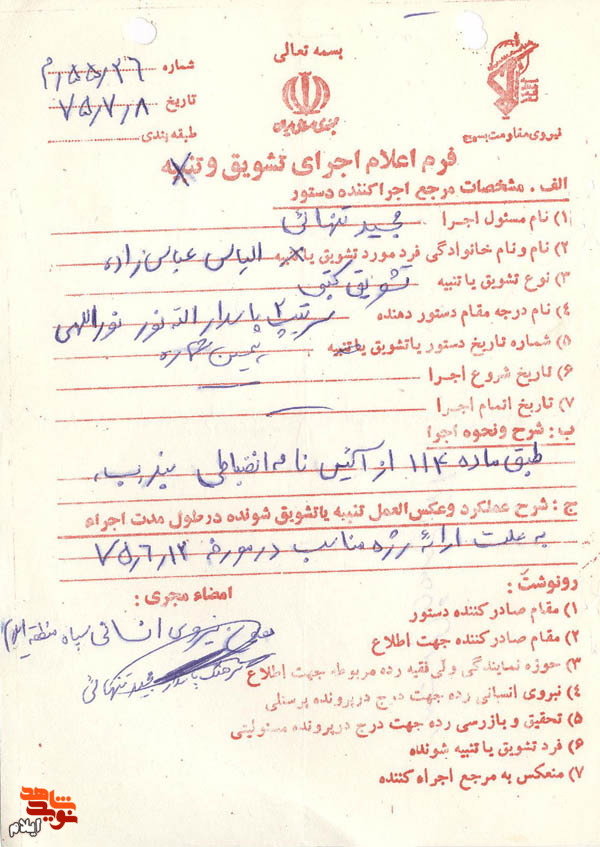 بسمه تعالی
شماره ۵۵/۲۶/م
تاریخ ۷۵/۷/۸
طبقه بندی
جمهوری اسلامی ایران
نیروی مقاومت بسیج
فرم اعلام اجرای تشویق و تنبیه
الف . مشخصات مرجع اجرا کننده دستور
۱) نام مسئول اجرا مجید تنهائی
۲) نام و نام خانوادگی فرد مورد تشویق یا تنبیه الیاس عباس زاده
۳) نوع تشویق یا تنبیه تشویق کتبی
۴) نام درجه مقام دستور دهنده سرتیپ ۲ پاسدار اله نور نوراللهی
۵) شماره تاریخ دستور یا تشویق یا تنبیه همین شماره
۶) تاریخ شروع اجرا
۷) تاریخ اتمام اجرا
ب : شرح و نحوه اجرا
طبق ماده ۱۱۴ از آئین نامه انضباطی بند ب
ج : شرح عملکرد و عکس‌العمل تنبیه یا تشویق شونده در طول مدت اجراء
به علت ارائه رژه مناسب در مورخه ۷۵/۶/۱۲
امضاء مجری :
نیروی انسانی سپاه منطقه ایلام
سرهنگ پاسدار مجید تنهائی
رونوشت :
۱) مقام صادر کننده دستور
۲) مقام صادر کننده جهت اطلاع
۳) حوزه نمایندگی ولی فقیه رده مربوطه جهت اطلاع
۴) نیروی انسانی رده جهت درج در پرونده پرسنلی
۵) تحقیق و بازرسی رده جهت درج در پرونده مسئولیتی
۶) فرد تشویق یا تنبیه شونده
۷) منعکس به مرجع اجراء کننده
نوید شاهد
ایلام